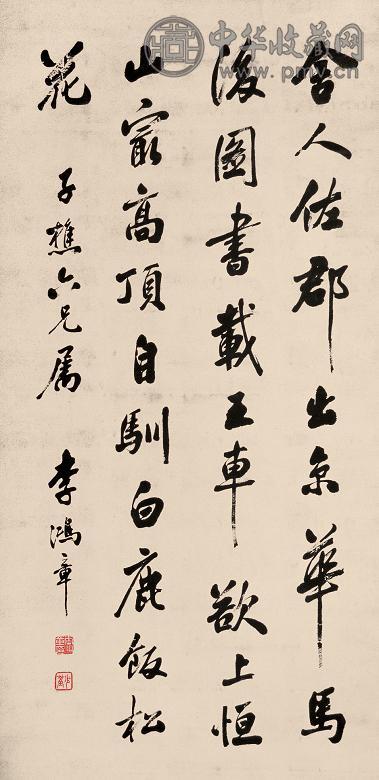 中华收藏网
www.pmv.cn
舍人佐郡出京華馬
後圖書載五車欲上恒
山㝡高頂自馴白鹿飯松
花
子樵六兄属
李鴻章